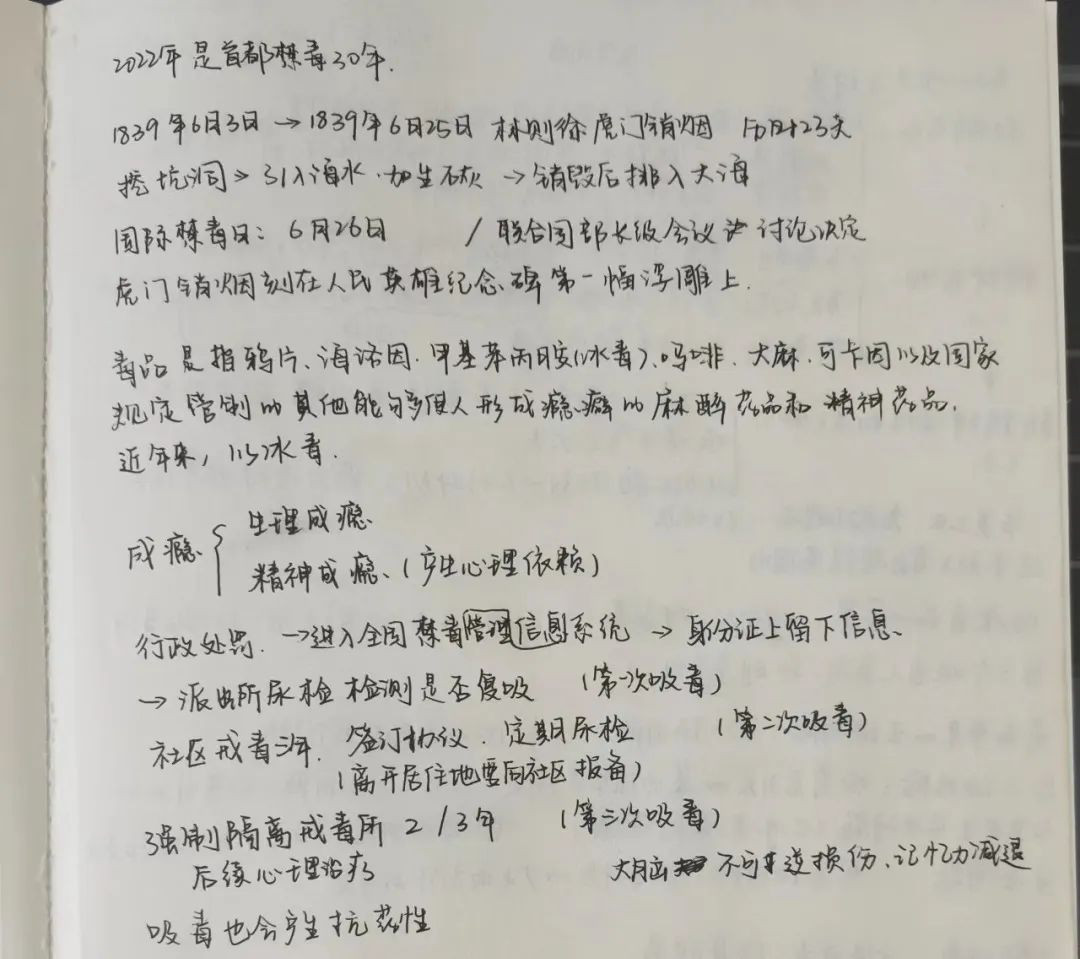 2022年是首都禁毒30年.
1839年6月3日→1839年6月25日 林则徐虎门销烟 历时23天
挖坑洞》引入海水.加生石灰→销毁后排入大海
国际禁毒日:6月26日 / 联合国部长级会议 讨论决定
虎门销烟刻在人民英雄纪念碑第一幅浮雕上.
毒品是指鸦片、海洛因.甲基苯丙胺(冰毒)、吗啡.大麻.可卡因以及国家
规定管制的其他能够使人形成瘾癖的麻醉药品和精神药品.
近年来,以冰毒.
成瘾{生理成瘾
精神成瘾、(产生心理依赖)
行政处罚.→进入全国禁毒管理信息系统→身份证上留下信息、
→派出所尿检 检测是否复吸 (第一次吸毒)
社区戒毒三年.签订协议.定期尿检 (第二次吸毒)
(离开居住地要向社区报备)
强制隔离戒毒所 2/3年 (第三次吸毒)
后续心理治疗 大脑 不可逆损伤、记忆力减退
吸毒也会产生抗药性